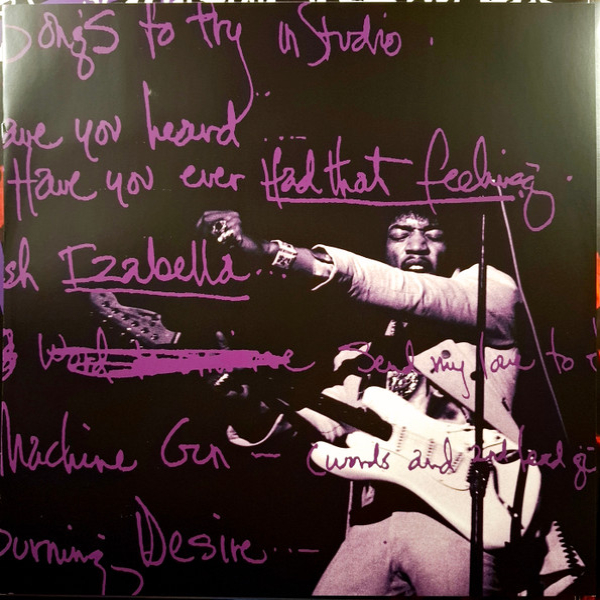 Songs to try in Studio.
ave you heard ...
Have you ever Had that feeling.
sh Izabella...
Send my love to
Machine Gun — (words and 2nd lead g
Burning Desire...—